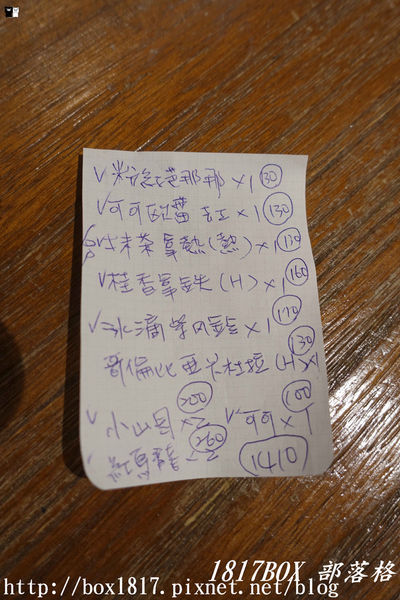 V粉紅芭那那×1 130
V可可歐蕾 ×1 130
V抹茶拿熱(熱)×1 130
V桂香拿鐵(H)×1 160
V冰滴 ×1 170
哥倫比亞卡杜拉(H)×1 130
V小山園×2 200 V可可×1 100
×2 260 1410
1817BOX 部落格
http://box1817.pixnet.net/blog